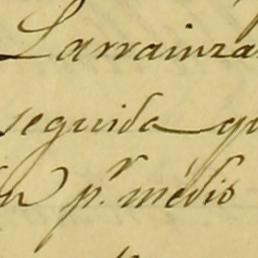 Larrainza
seguida qu
n p.r médio